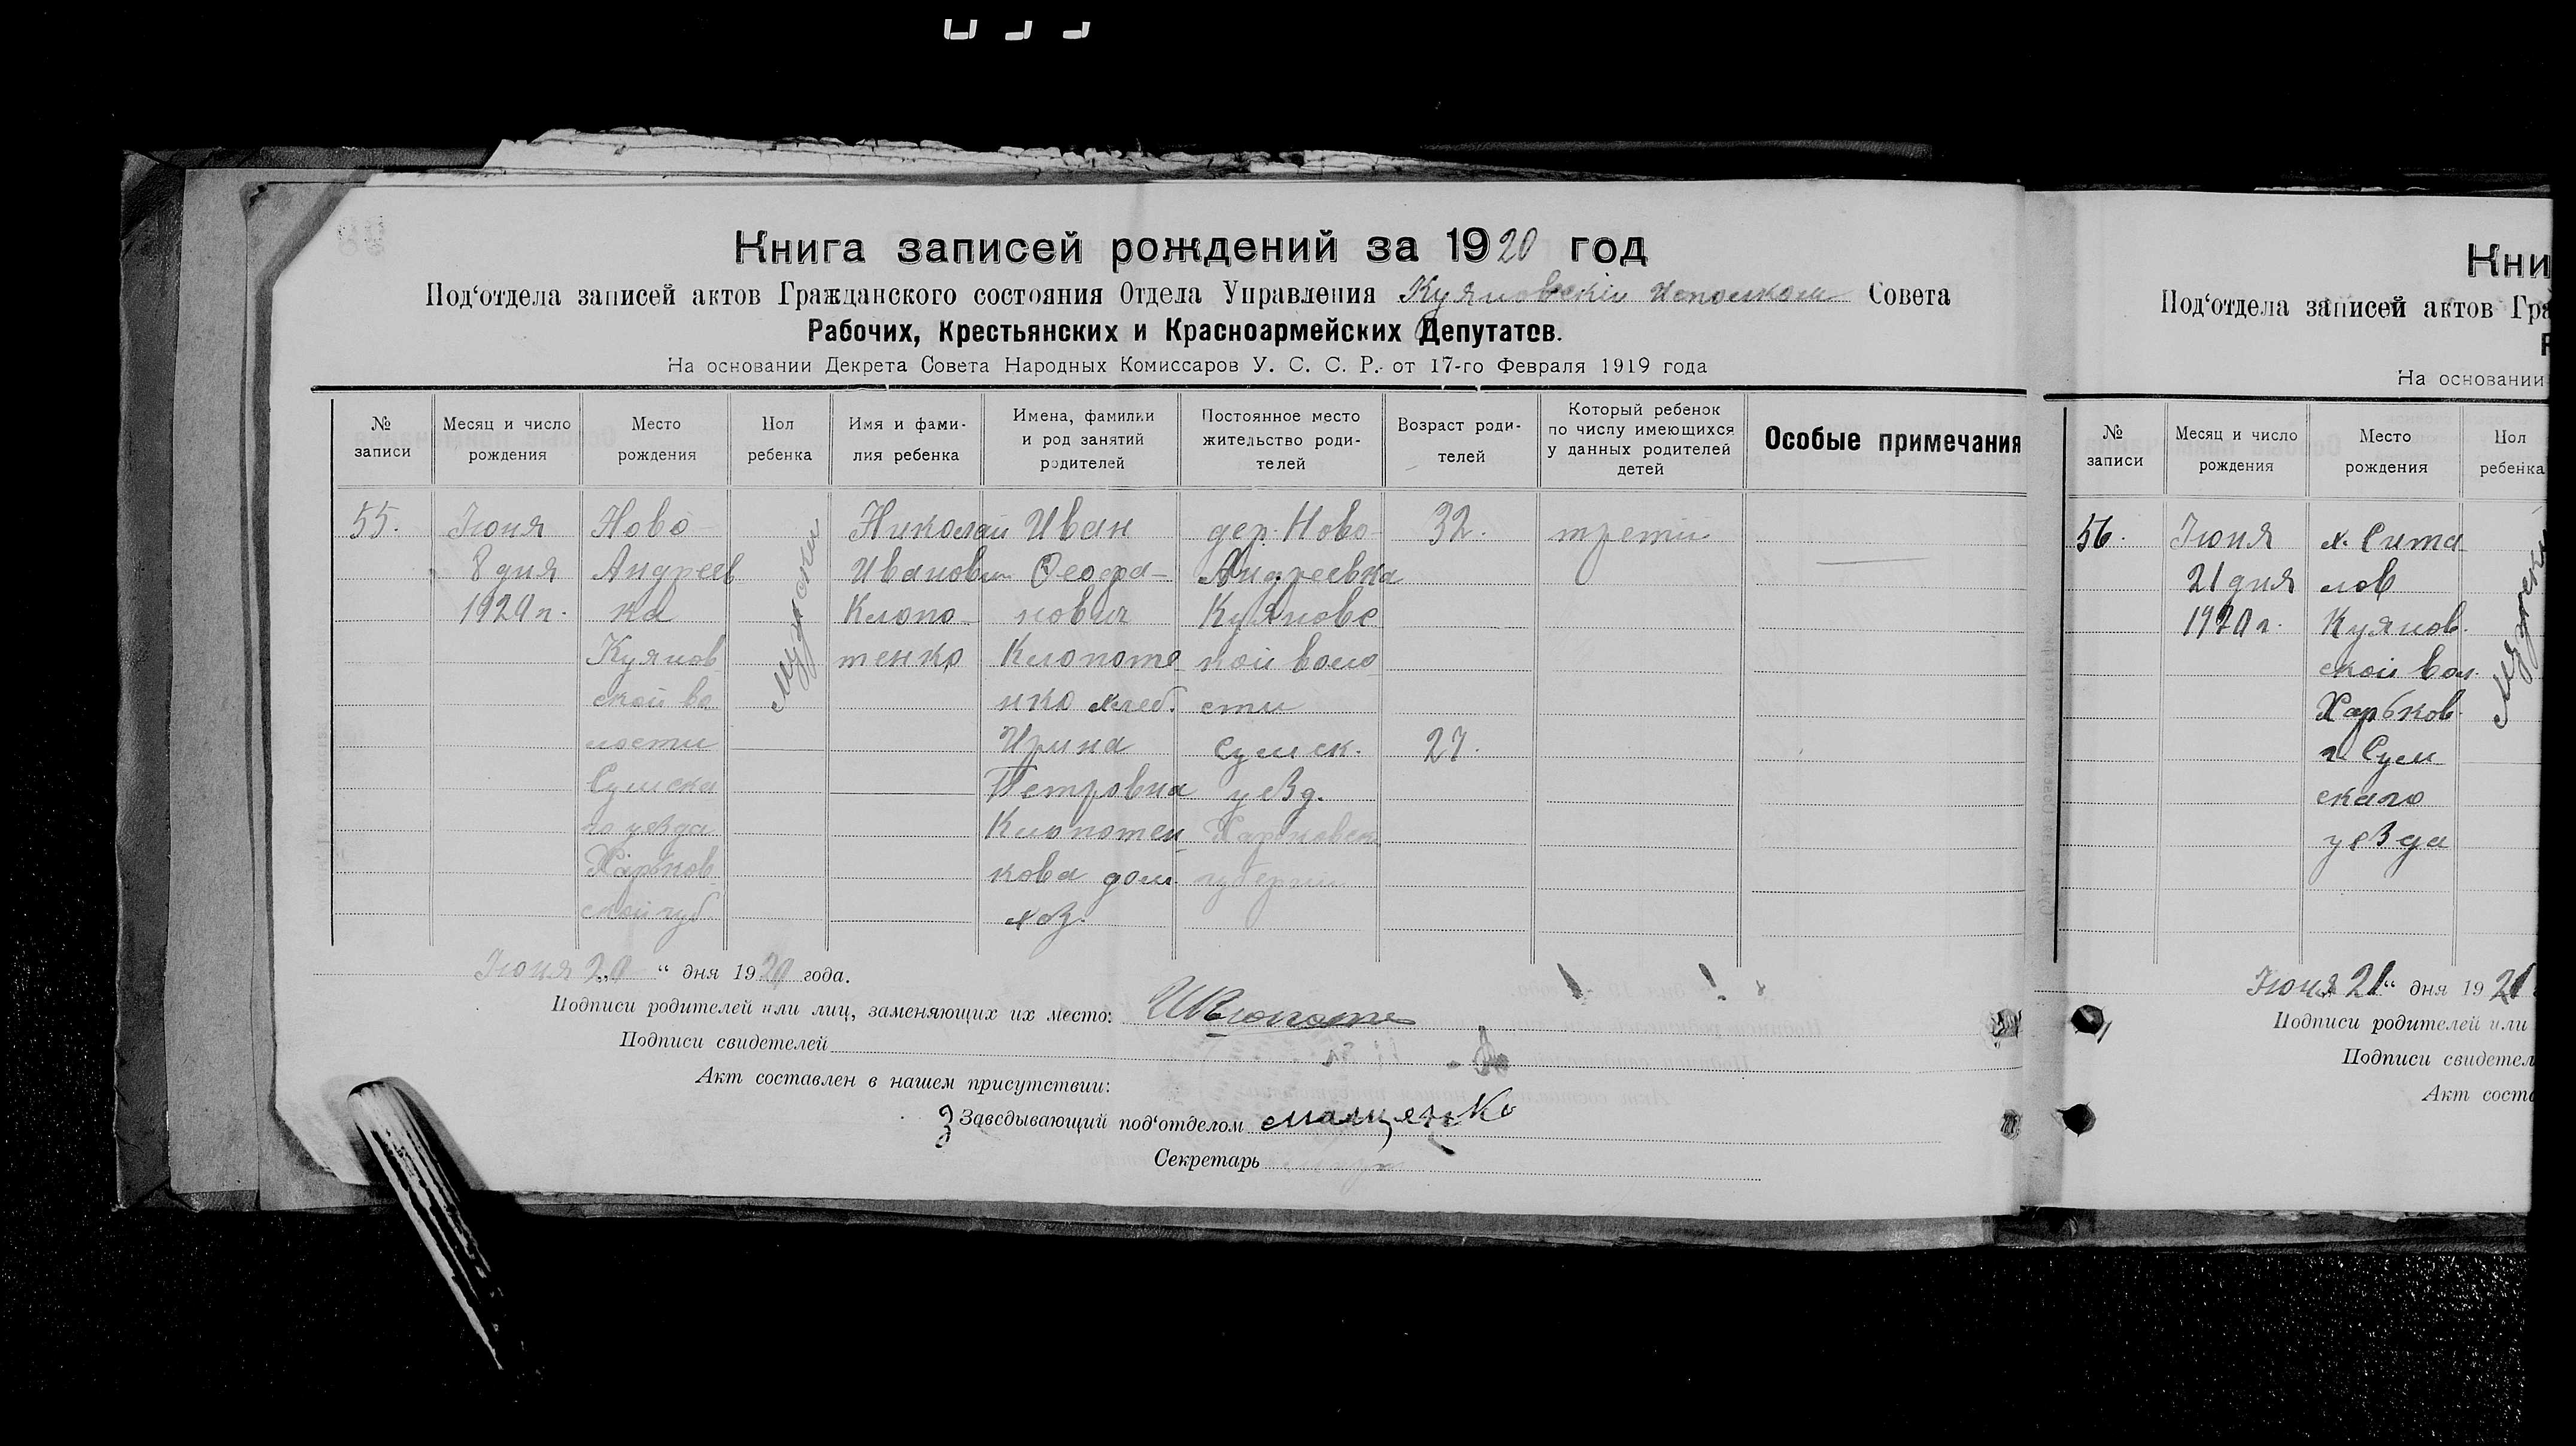 Книга записей рождений за 1920 год
Под‘отдела записей актов Гражданского состояния Отдела Управления Куяновскій Исполком Совета
Рабочих, Крестьянских и Красноармейских Депутатов.
На основании Декрета Совета Народных Комиссаров У. С. С. Р. от 17-го Февраля 1919 года
№ записи
Месяц и число рождения
Место рождения
Пол ребенка
Имя и фами-
лия ребенка
Имена, фамилии
и род занятий
родителей
Постоянное место
жительство роди-
телей
Возраст роди-
телей
Который ребенок
по числу имеющихся
у данных родителей
детей
Особые примечания
55.
Іюня
8 дня
1920 г.
Ново
Андреев
ка
Куянов
ской во
лости
Сумска
го уезда
Харьков
ской губ.
мужской
Николай
Иванович
Клопо-
тенко
Иван
Феофа-
нович
Клопоте
нко хлеб.
Ирина
Петровна
Клопотен
кова дом.
хоз.
дер. Ново-
Андреевка
Куяновс
кой воло
сти
Сумск.
уезд.
Харьковск
губернии
32.
27.
третий
Іюня 20 “ дня 1920 года.
Подписи родителей или лиц, заменяющих их место: ИКлопоте
Подписи свидетелей
Акт составлен в нашем присутствии:
З Заведывающий под‘отделом
Секретарь
Кни
Под‘отдела записей актов Гра
Р
На основании
№ записи
Месяц и число
рождения
Место
рождения
Пол
ребенка
56.
Іюня
21 дня
1920 г.
х. Сита
лов
Куянов.
ской вол.
Харьков.
г. Сум
скаго
уезда
мужской
Іюня 21 “ дня 192
Подписи родителей или
Подписи свидетел
Акт соста